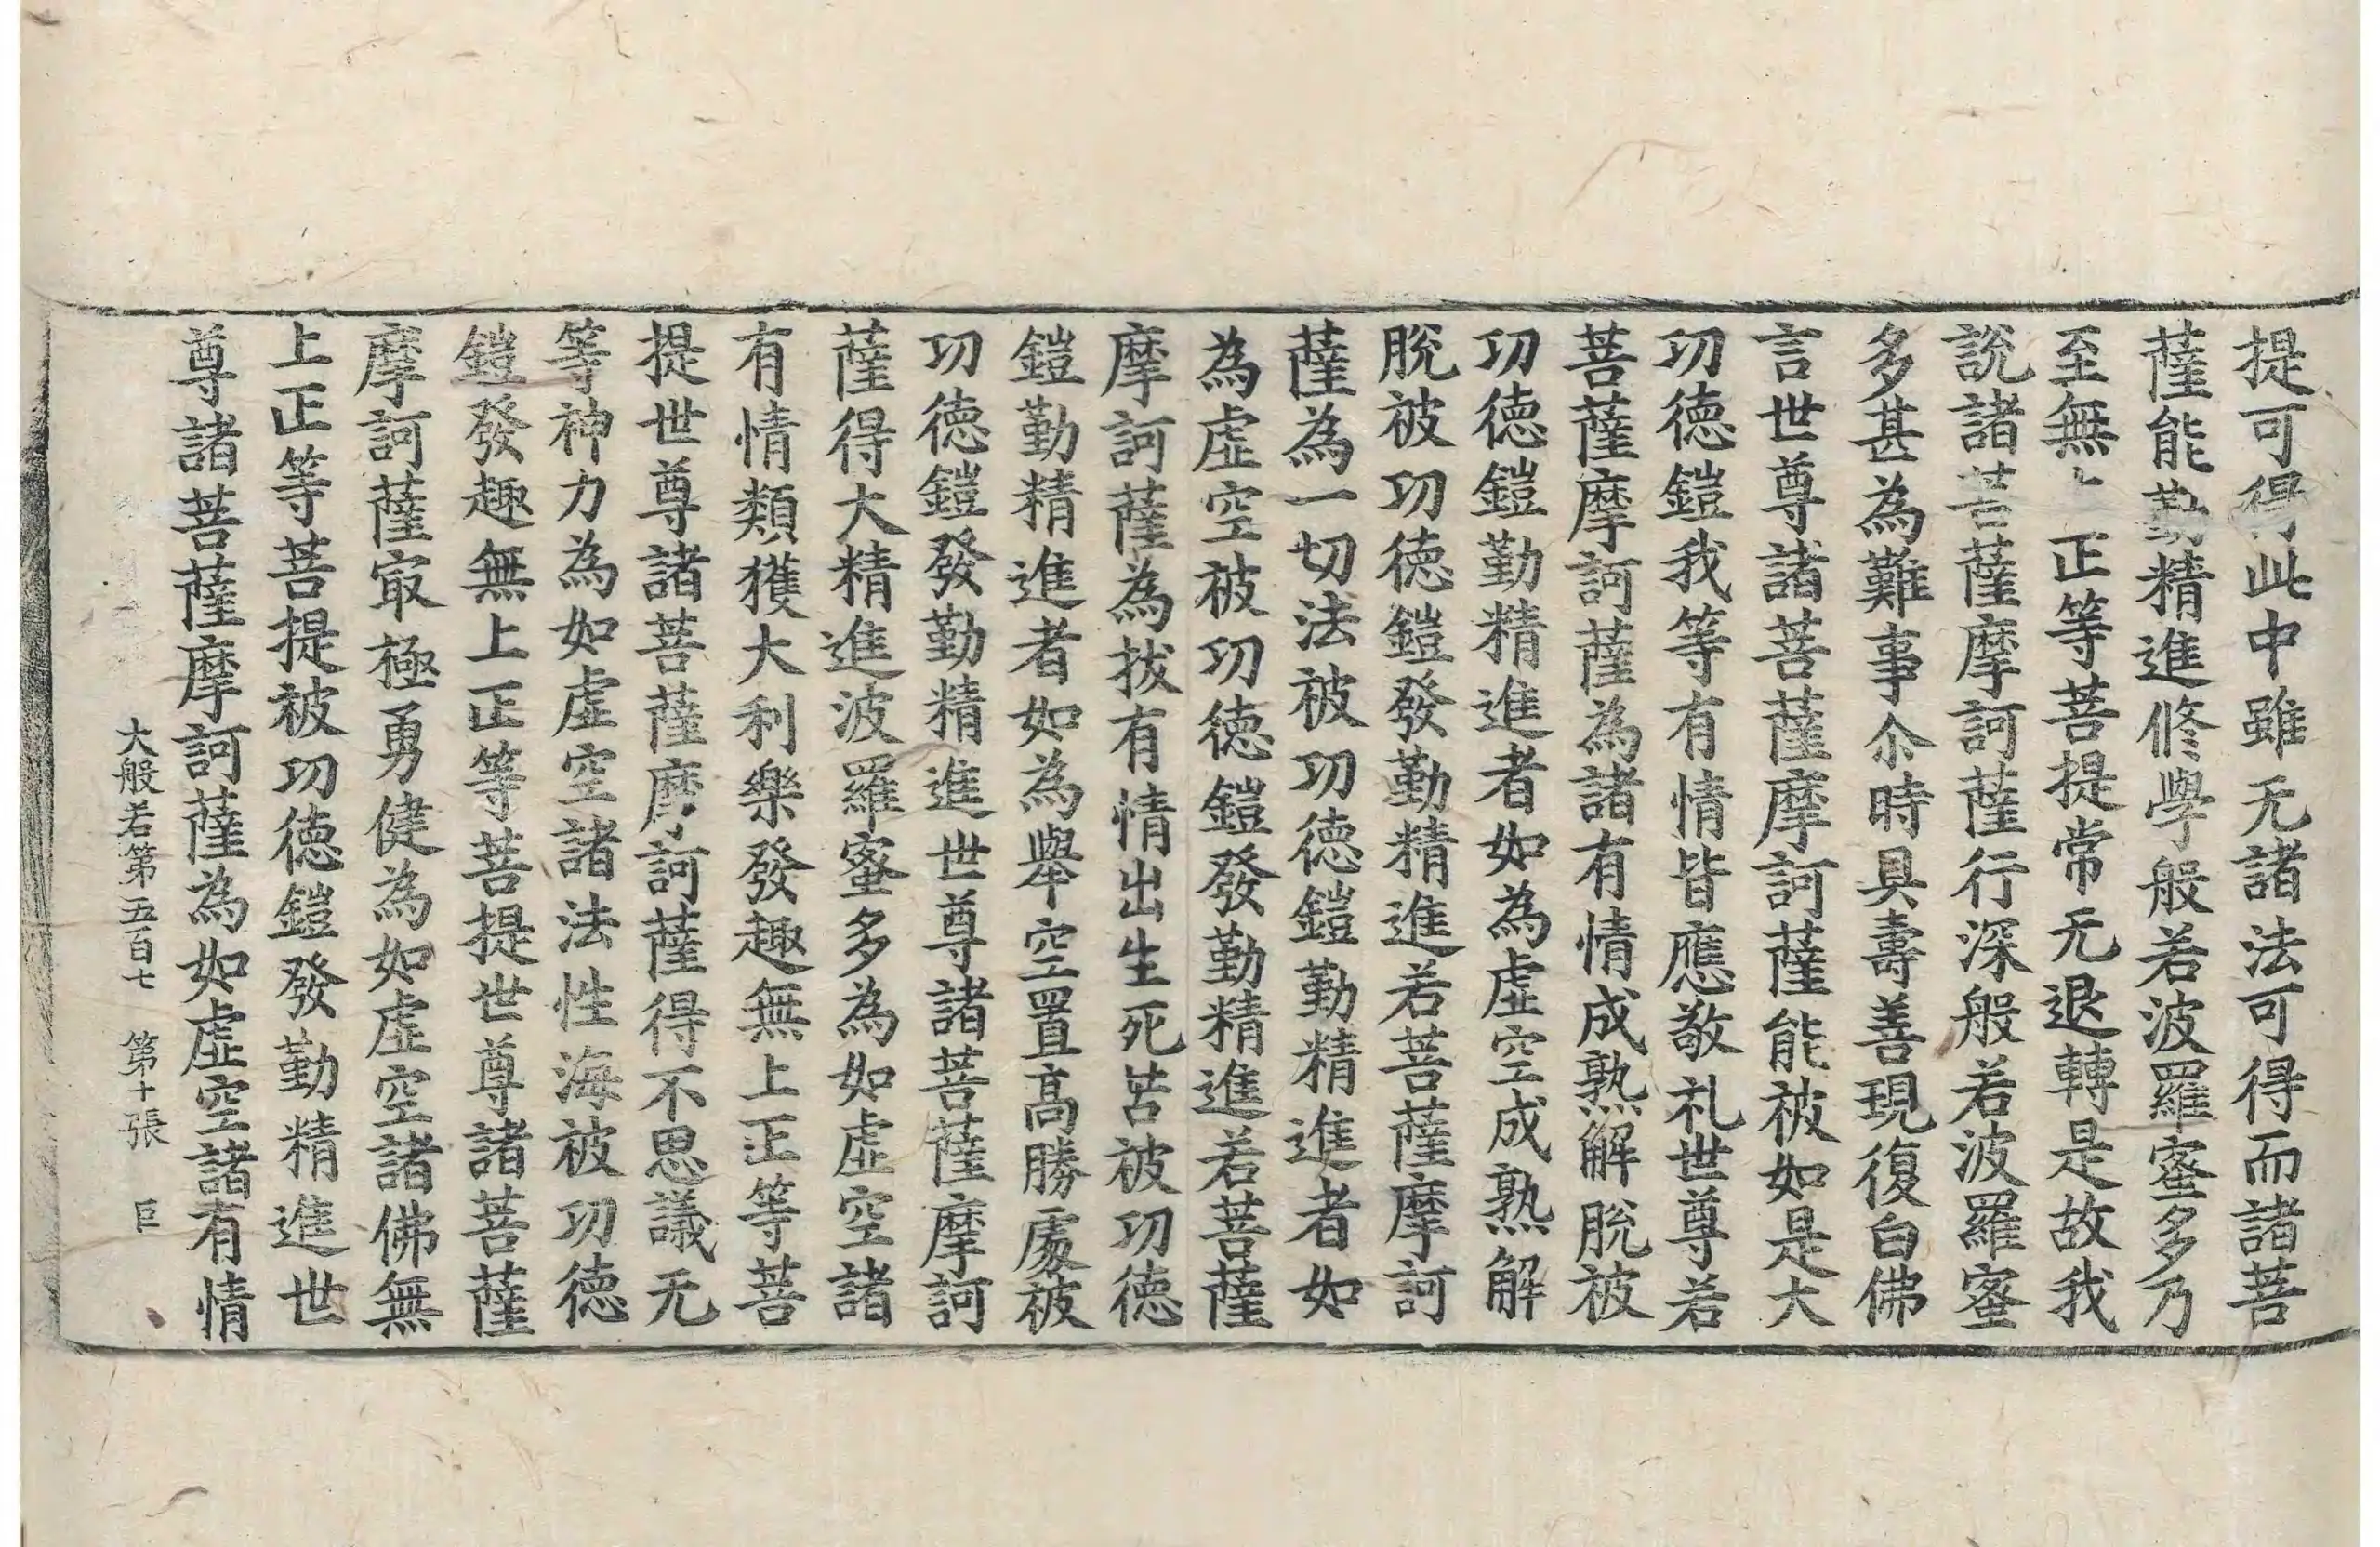 提可得此中雖无諸法可得而諸菩
薩能勤精進修學般若波羅蜜多乃
至無上正等菩提常无退轉是故我
說諸菩薩摩訶薩行深般若波羅蜜
多甚為難事尒時具壽善現復白佛
言世尊諸菩薩摩訶薩能被如是大
功德鎧我等有情皆應敬礼世尊若
菩薩摩訶薩為諸有情成熟解脫被
功德鎧勤精進者如為虛空成熟解
脫被功德鎧發勤精進若菩薩摩訶
薩為一切法被功德鎧勤精進者如
為虛空被功德鎧發勤精進若菩薩
摩訶薩為拔有情出生死苦被功德
鎧勤精進者如為舉空置高勝處被
功德鎧發勤精進世尊諸菩薩摩訶
薩得大精進波羅蜜多為如虛空諸
有情類獲大利樂發趣無上正等菩
提世尊諸菩薩摩訶薩得不思議无
等神力為如虛空諸法性海被功德
鎧發趣無上正等菩提世尊諸菩薩
摩訶薩㝡極勇健為如虛空諸佛無
上正等菩提被功德鎧發勤精進世
尊諸菩薩摩訶薩為如虛空諸有情
大般若第五百七 第十張 巨